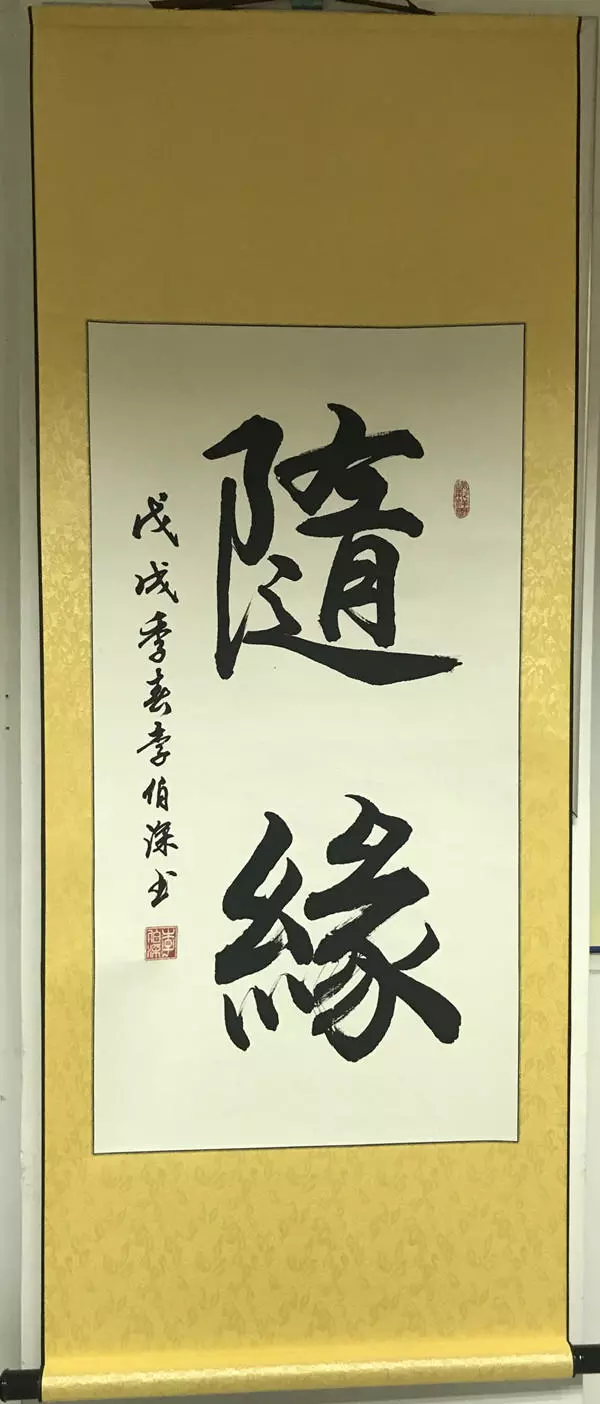 隨緣
戊戌季春李伯深书
李伯深